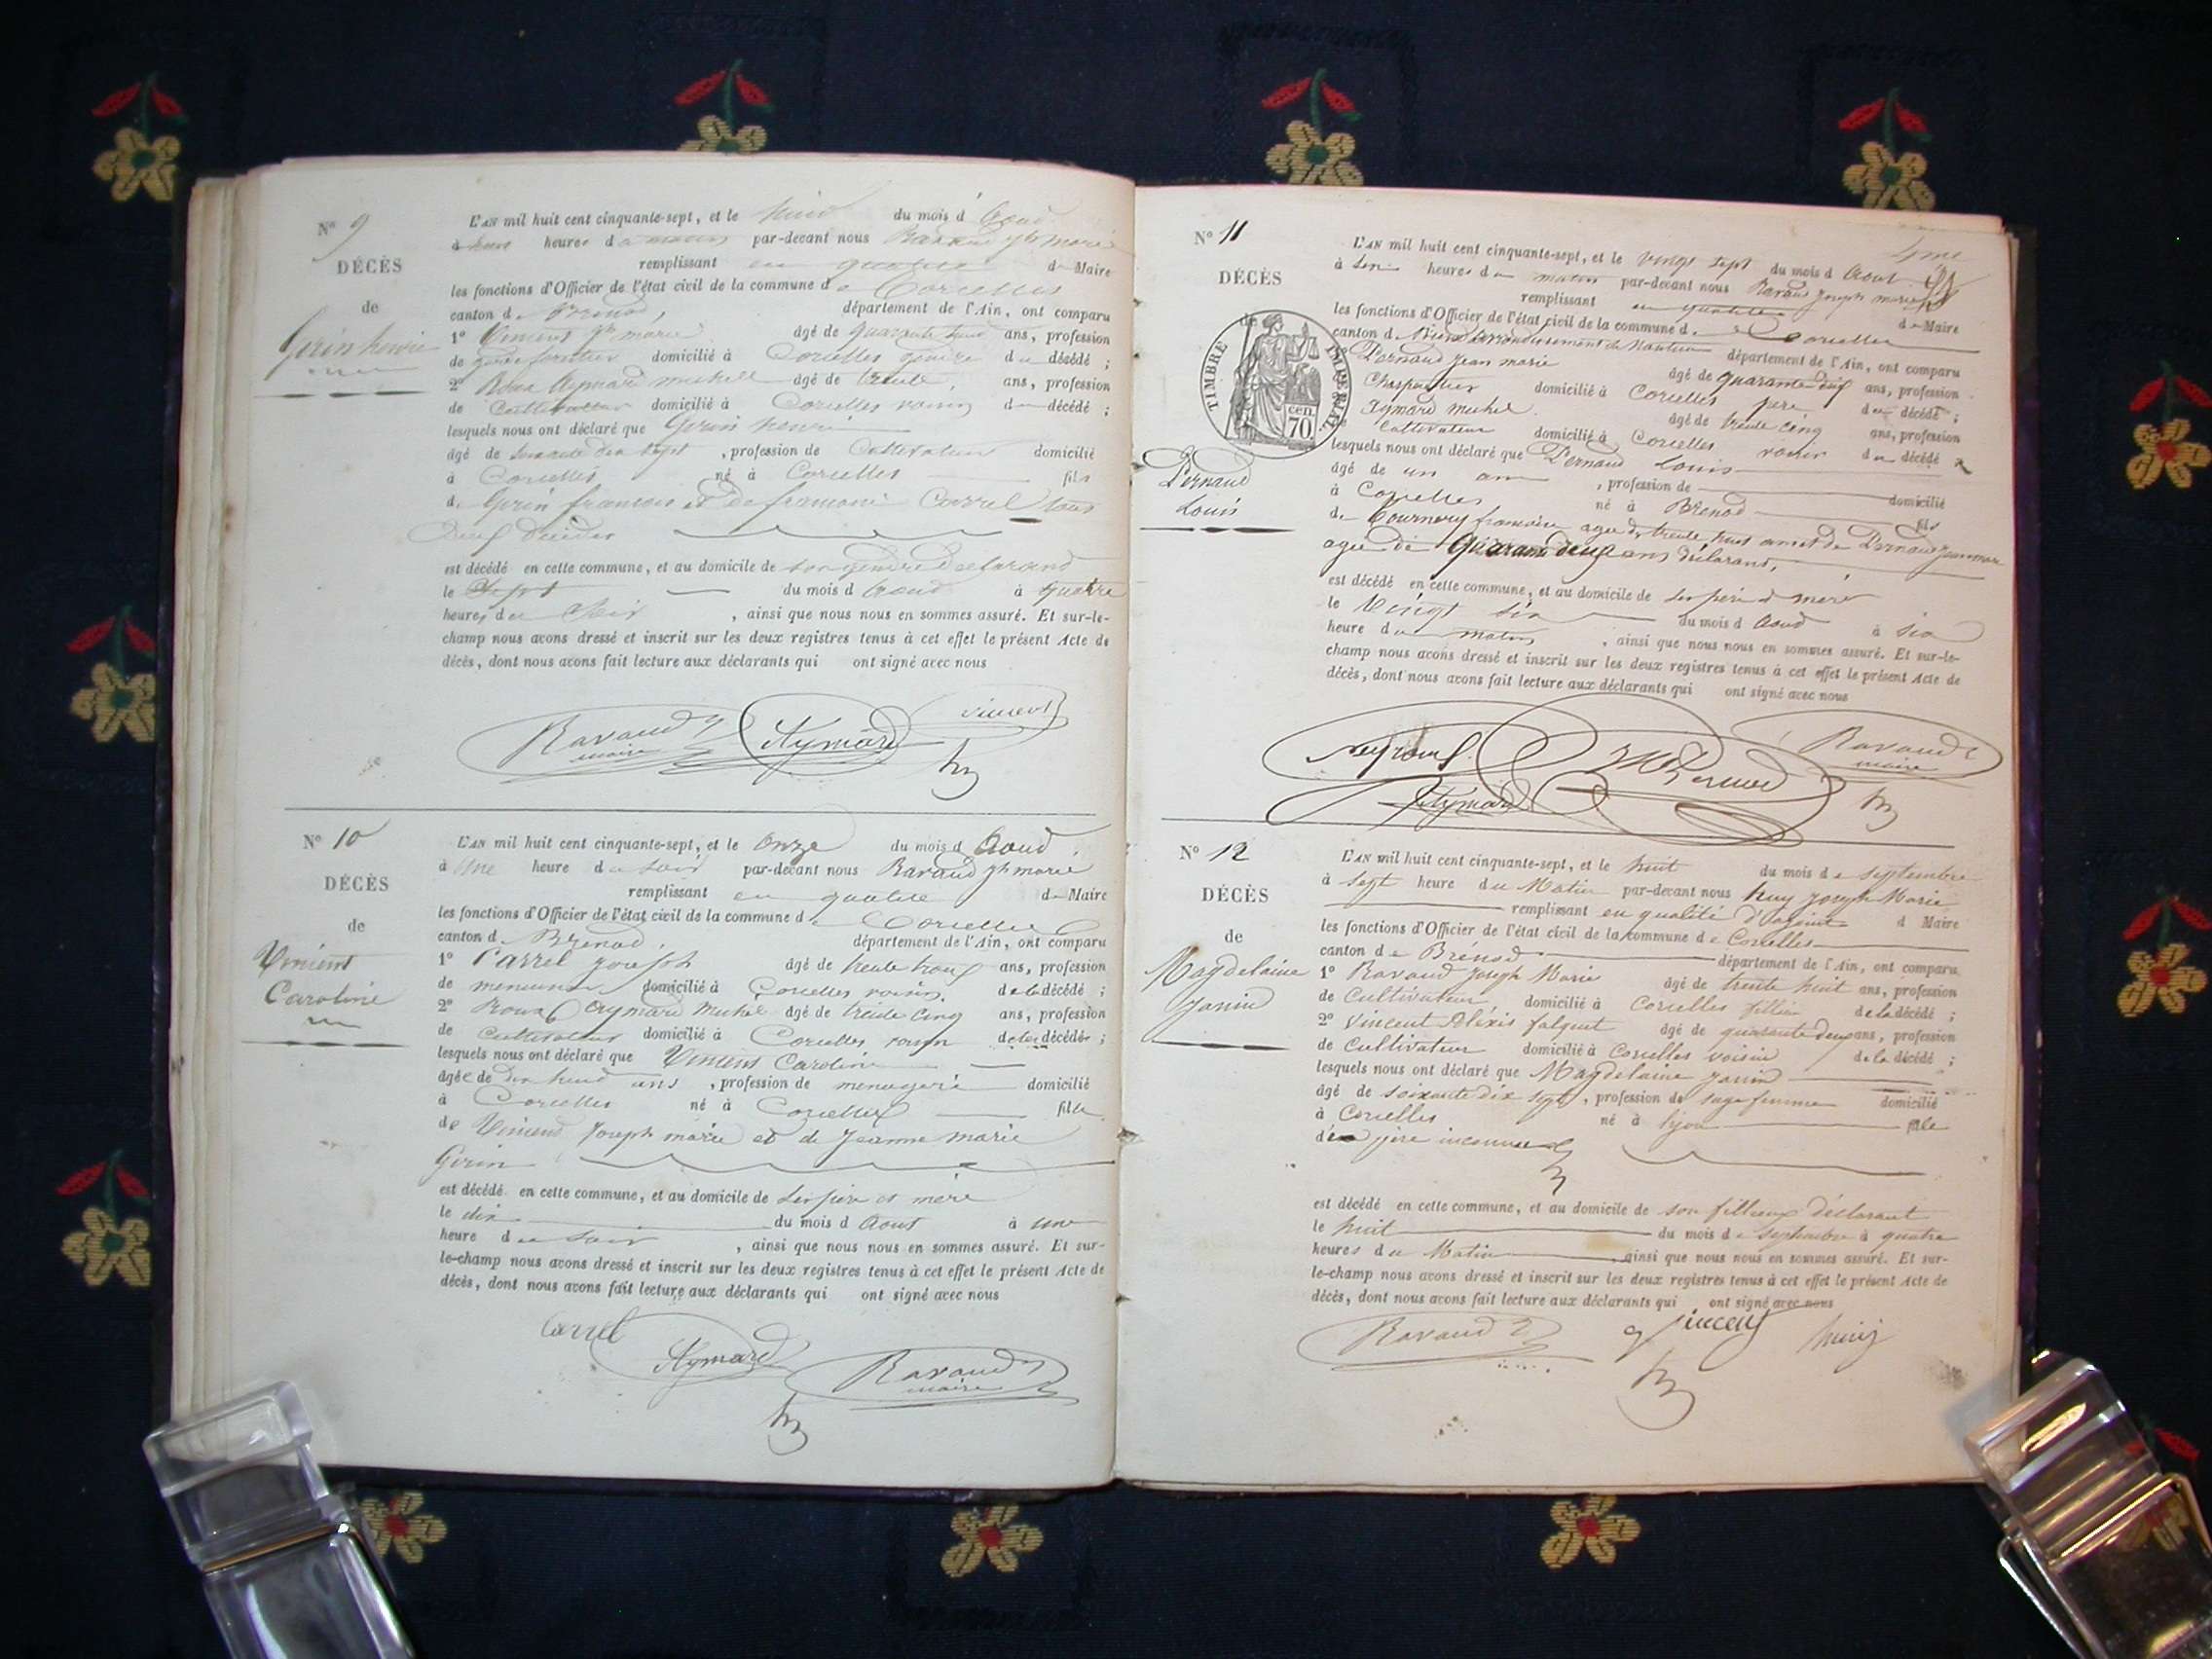 N° 9
DÉCÈS
de
Gerin henri
L'AN mil huit cent cinquante-sept, et le huit du mois d'Aoud
à heures d matin par-devant nous Ravaud jh marie
remplissant en qualité de Maire
les fonctions d'Officier de l'état civil de la commune de Corcelles
canton de Brenod, département de l'Ain, ont comparu
1° Vincent jh marie âgé de quarante huit ans, profession
de garde forestier domicilié à Corcelles gendre du décédé ;
2° Aymard michell âgé de trente, ans, profession
de Cultivateur domicilié à Corcelles voisin du décédé ;
lesquels nous ont déclaré que Gerin henri
âgé de soixante dix sept , profession de Cultivateur domicilié
à Corcelles né à Corcelles fils
de Gerin francois et de Carrel tous
Deux décédés
est décédé en cette commune, et au domicile de son gendre déclarand
le Sept du mois d Aoud à quatre
heures du Soir , ainsi que nous nous en sommes assuré. Et sur-le-
champ nous avons dressé et inscrit sur les deux registres tenus à cet effet le présent Acte de
décès, dont nous avons fait lecture aux déclarants qui ont signé avec nous
Ravaud maire Aymard vincent
N° 10
DÉCÈS
de
Vincent
Caroline
L'AN mil huit cent cinquante-sept, et le onze du mois d Aoud
à une heure du soir par-devant nous Ravaud jh marie
remplissant en qualité de Maire
les fonctions d'Officier de l'état civil de la commune de Corcelles
canton d Brenod, département de l'Ain, ont comparu
1° Carrel joseph âgé de trente trois ans, profession
de menuisier domicilié à Corcelles voisin de la décédé ;
2° Aymard michel âgé de trente cinq ans, profession
de cultivateur domicilié à Corcelles voisin de la décédée ;
lesquels nous ont déclaré que Vincent Caroline
âgée de dix huit ans , profession de menagere domicilié
à Corcelles né à Corcelles fille
de Vincend joseph marie et de jeanne marie
Gerin
est décédé en cette commune, et au domicile de ses père et mère
le dix du mois d Aout à une
heure du soir , ainsi que nous nous en sommes assuré. Et sur-
le-champ nous avons dressé et inscrit sur les deux registres tenus à cet effet le présent Acte de
décès, dont nous avons fait lecture aux déclarants qui ont signé avec nous
Carrel Aymard Ravaud maire
N° 11
DÉCÈS
de
TIMBRE IMPÉRIAL
cen. 70
Pernaud
Louis
L'AN mil huit cent cinquante-sept, et le vingt sept du mois d Aout
à heures du matin par-devant nous Ravaud joseph marie
remplissant en qualité de Maire
les fonctions d'Officier de l'état civil de la commune de Corcelles
canton d arrondissement de Nantua département de l'Ain, ont comparu
Pernaud jean marie âgé de quarante deux ans, profession
Charpentier domicilié à Corcelles père du décédé ;
Aymard michel âgé de trente cinq ans, profession
Cultivateur domicilié à Corcelles voisin du décédé
lesquels nous ont déclaré que Pernaud Louis
âgé de un an , profession de domicilié
à Corcelles né à Brenod fils
de Tournery francoise agée de trente huit ans et de Pernaud jean marie
agée de Quarante deux ans déclarant,
est décédé en cette commune, et au domicile de ses père et mère
le Vingt six du mois d Aoud à six
heure du matin , ainsi que nous nous en sommes assuré. Et sur-le-
champ nous avons dressé et inscrit sur les deux registres tenus à cet effet le présent Acte de
décès, dont nous avons fait lecture aux déclarants qui ont signé avec nous
Pernod Ravaud maire
Aymard
N° 12
DÉCÈS
de
Magdelaine
Janin
L'AN mil huit cent cinquante-sept, et le huit du mois de septembre
à sept heure du Matin par-devant nous huy Joseph Marie
remplissant en qualité d'adjoint d Maire
les fonctions d'Officier de l'état civil de la commune de Corcelles
canton de Brénod département de l'Ain, ont comparu
1° Ravaud Joseph Marie âgé de trente huit ans, profession
de Cultivateur domicilié à Corcelles de la décédé ;
2° Vincent Aléxis falquet âgé de quarante deux ans, profession
de Cultivateur domicilié à Corcelles voisin de la décédé ;
lesquels nous ont déclaré que Magdelaine Janin
âgé de soixante dix sept , profession de sage femme domicilié
à Corcelles né à lyon fille
de père inconnue
est décédé en cette commune, et au domicile de son filleux déclarant
le huit du mois de septembre à quatre
heures du Matin ainsi que nous nous en sommes assuré. Et sur-
le-champ nous avons dressé et inscrit sur les deux registres tenus à cet effet le présent Acte de
décès, dont nous avons fait lecture aux déclarants qui ont signé avec nous
Ravaud Vincent huy